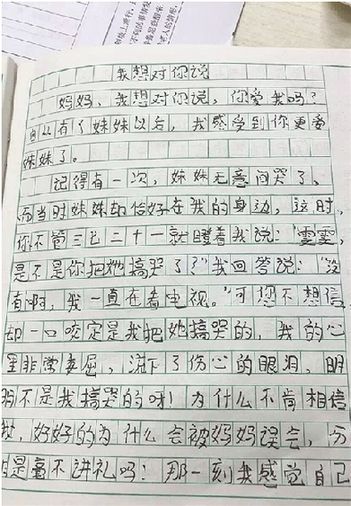 我想对你说
妈妈，我想对你说，你爱我吗？
自从有了妹妹以后，我感受到你更爱
妹妹了。
记得有一次，妹妹无意间哭了，
而当时妹妹却恰好在我的身边，这时，
你不管三七二十一就瞪着我说：“雯雯，
是不是你把她搞哭了？”我回答说：“没
有啊，我一直在看电视。”可您不想信
却一口咬定是我把她搞哭的，我的心
里非常委屈，流下了伤心的眼泪，明
明不是我搞哭的呀！为什么不肯相信
我，好好的为什么会被妈妈误会，万
但是毫不讲礼吗！那一刻我感觉自己